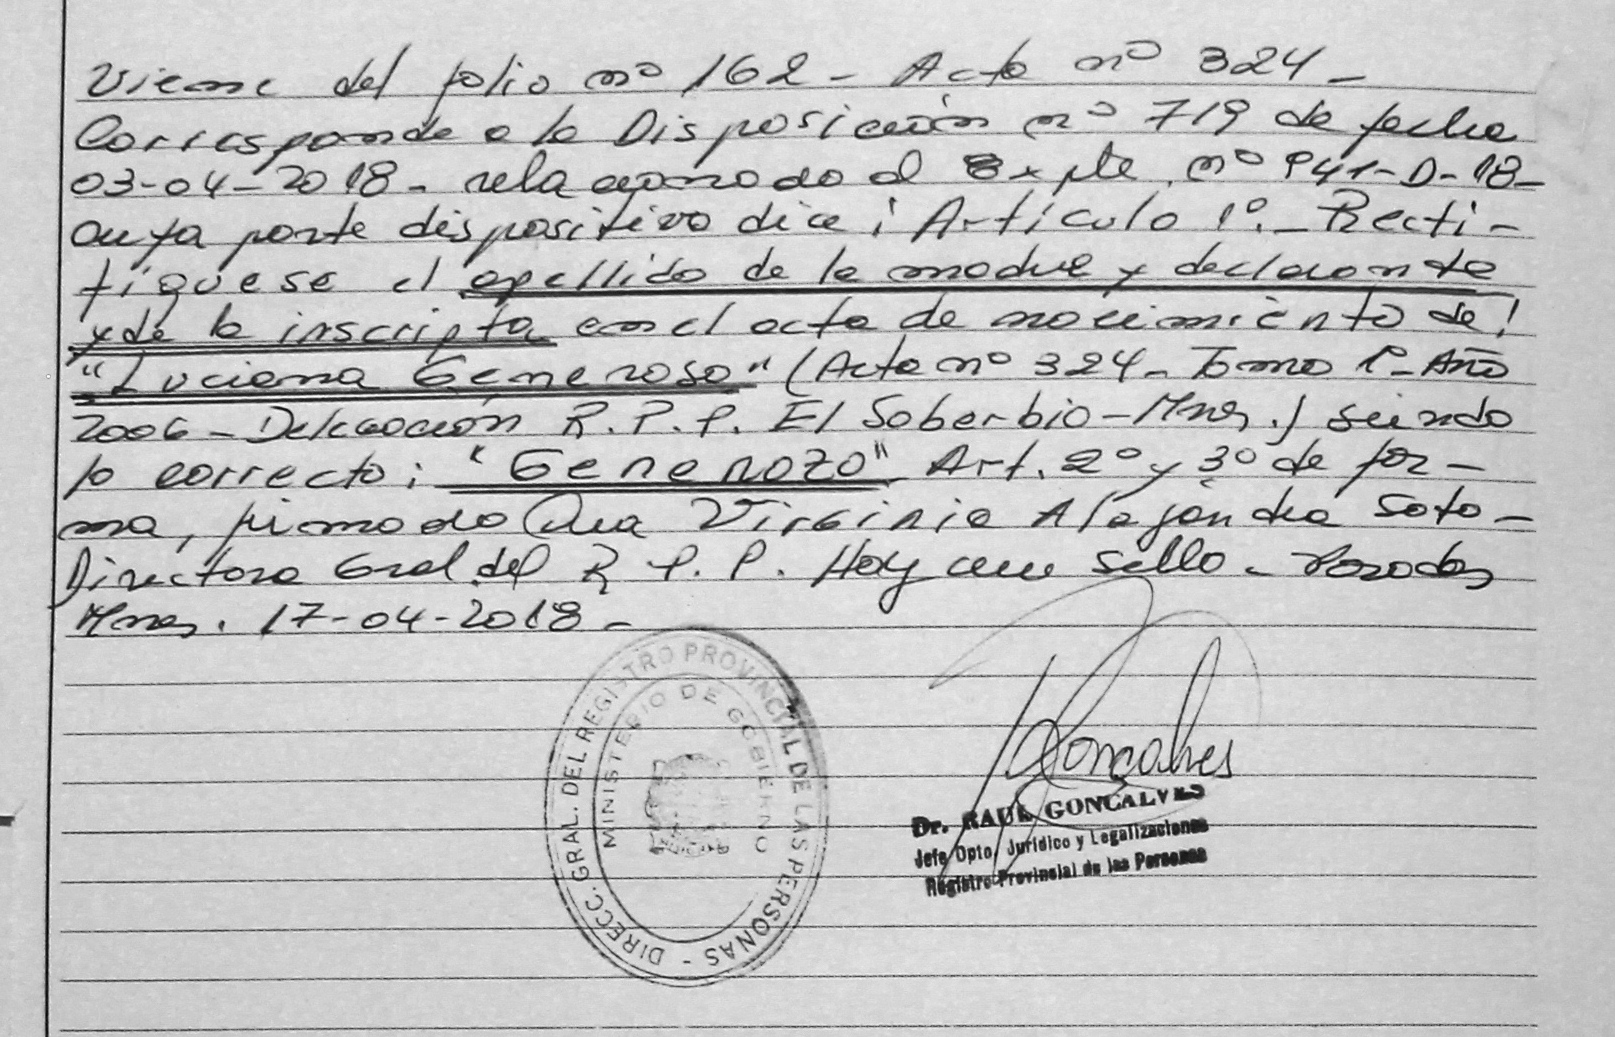 Viene del folio nº 162 - Acta nº 324 -
Corresponde a la Disposición nº 719 de fecha
03-04-2018 - relacionado al Expte. nº 941-D-18 -
cuya parte dispositiva dice: Artículo 1º. - Recti-
fíquese el apellido de la madre y declarante
y de la inscripta en el acta de nacimiento de:
"Luciana Generoso" (Acta nº 324 - Tomo 1º - Año
2006 - Delegación R. P. P. El Soberbio - Mnes.) siendo
lo correcto: "Generozo" Art. 2º y 3º de for-
ma, firmado Dra Virginia Alejandra Soto -
Directora Gral. del R. P. P. Hay un sello - Posadas
Mnes. 17-04-2018 -
DIRECC. GRAL. DEL REGISTRO PROVINCIAL DE LAS PERSONAS -
MINISTERIO DE GOBIERNO
Goncalves
Dr. RAUL GONCALVES
Jefe Dpto. Jurídico y Legalizaciones
Registro Provincial de las Personas